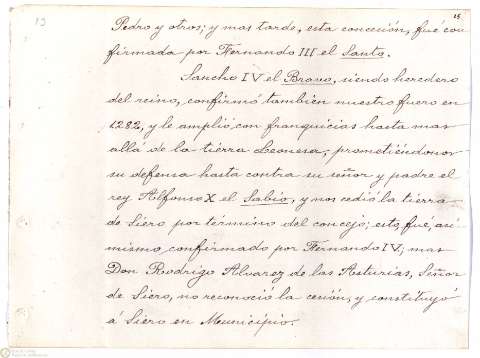 15
13
Pedro y otros; y mas tarde, esta concesión, fué con
firmada por Fernando III el Santo.
Sancho IV el Bravo, siendo heredero
del reino, confirmó también nuestro fuero en
1282, y le amplió con franquicias hasta mas
allá de la tierra Leonesa, prometiéndonos
su defensa hasta contra su señor y padre el
rey Alfonso X el Sabio, y nos cedió la tierra
de Siero por término del concejo; esto, fué, asi
mismo, confirmado por Fernando IV; mas
Don Rodrigo Alvarez de las Asturias, Señor
de Siero, no reconoció la cesión, y constituyó
á Siero en Municipio.